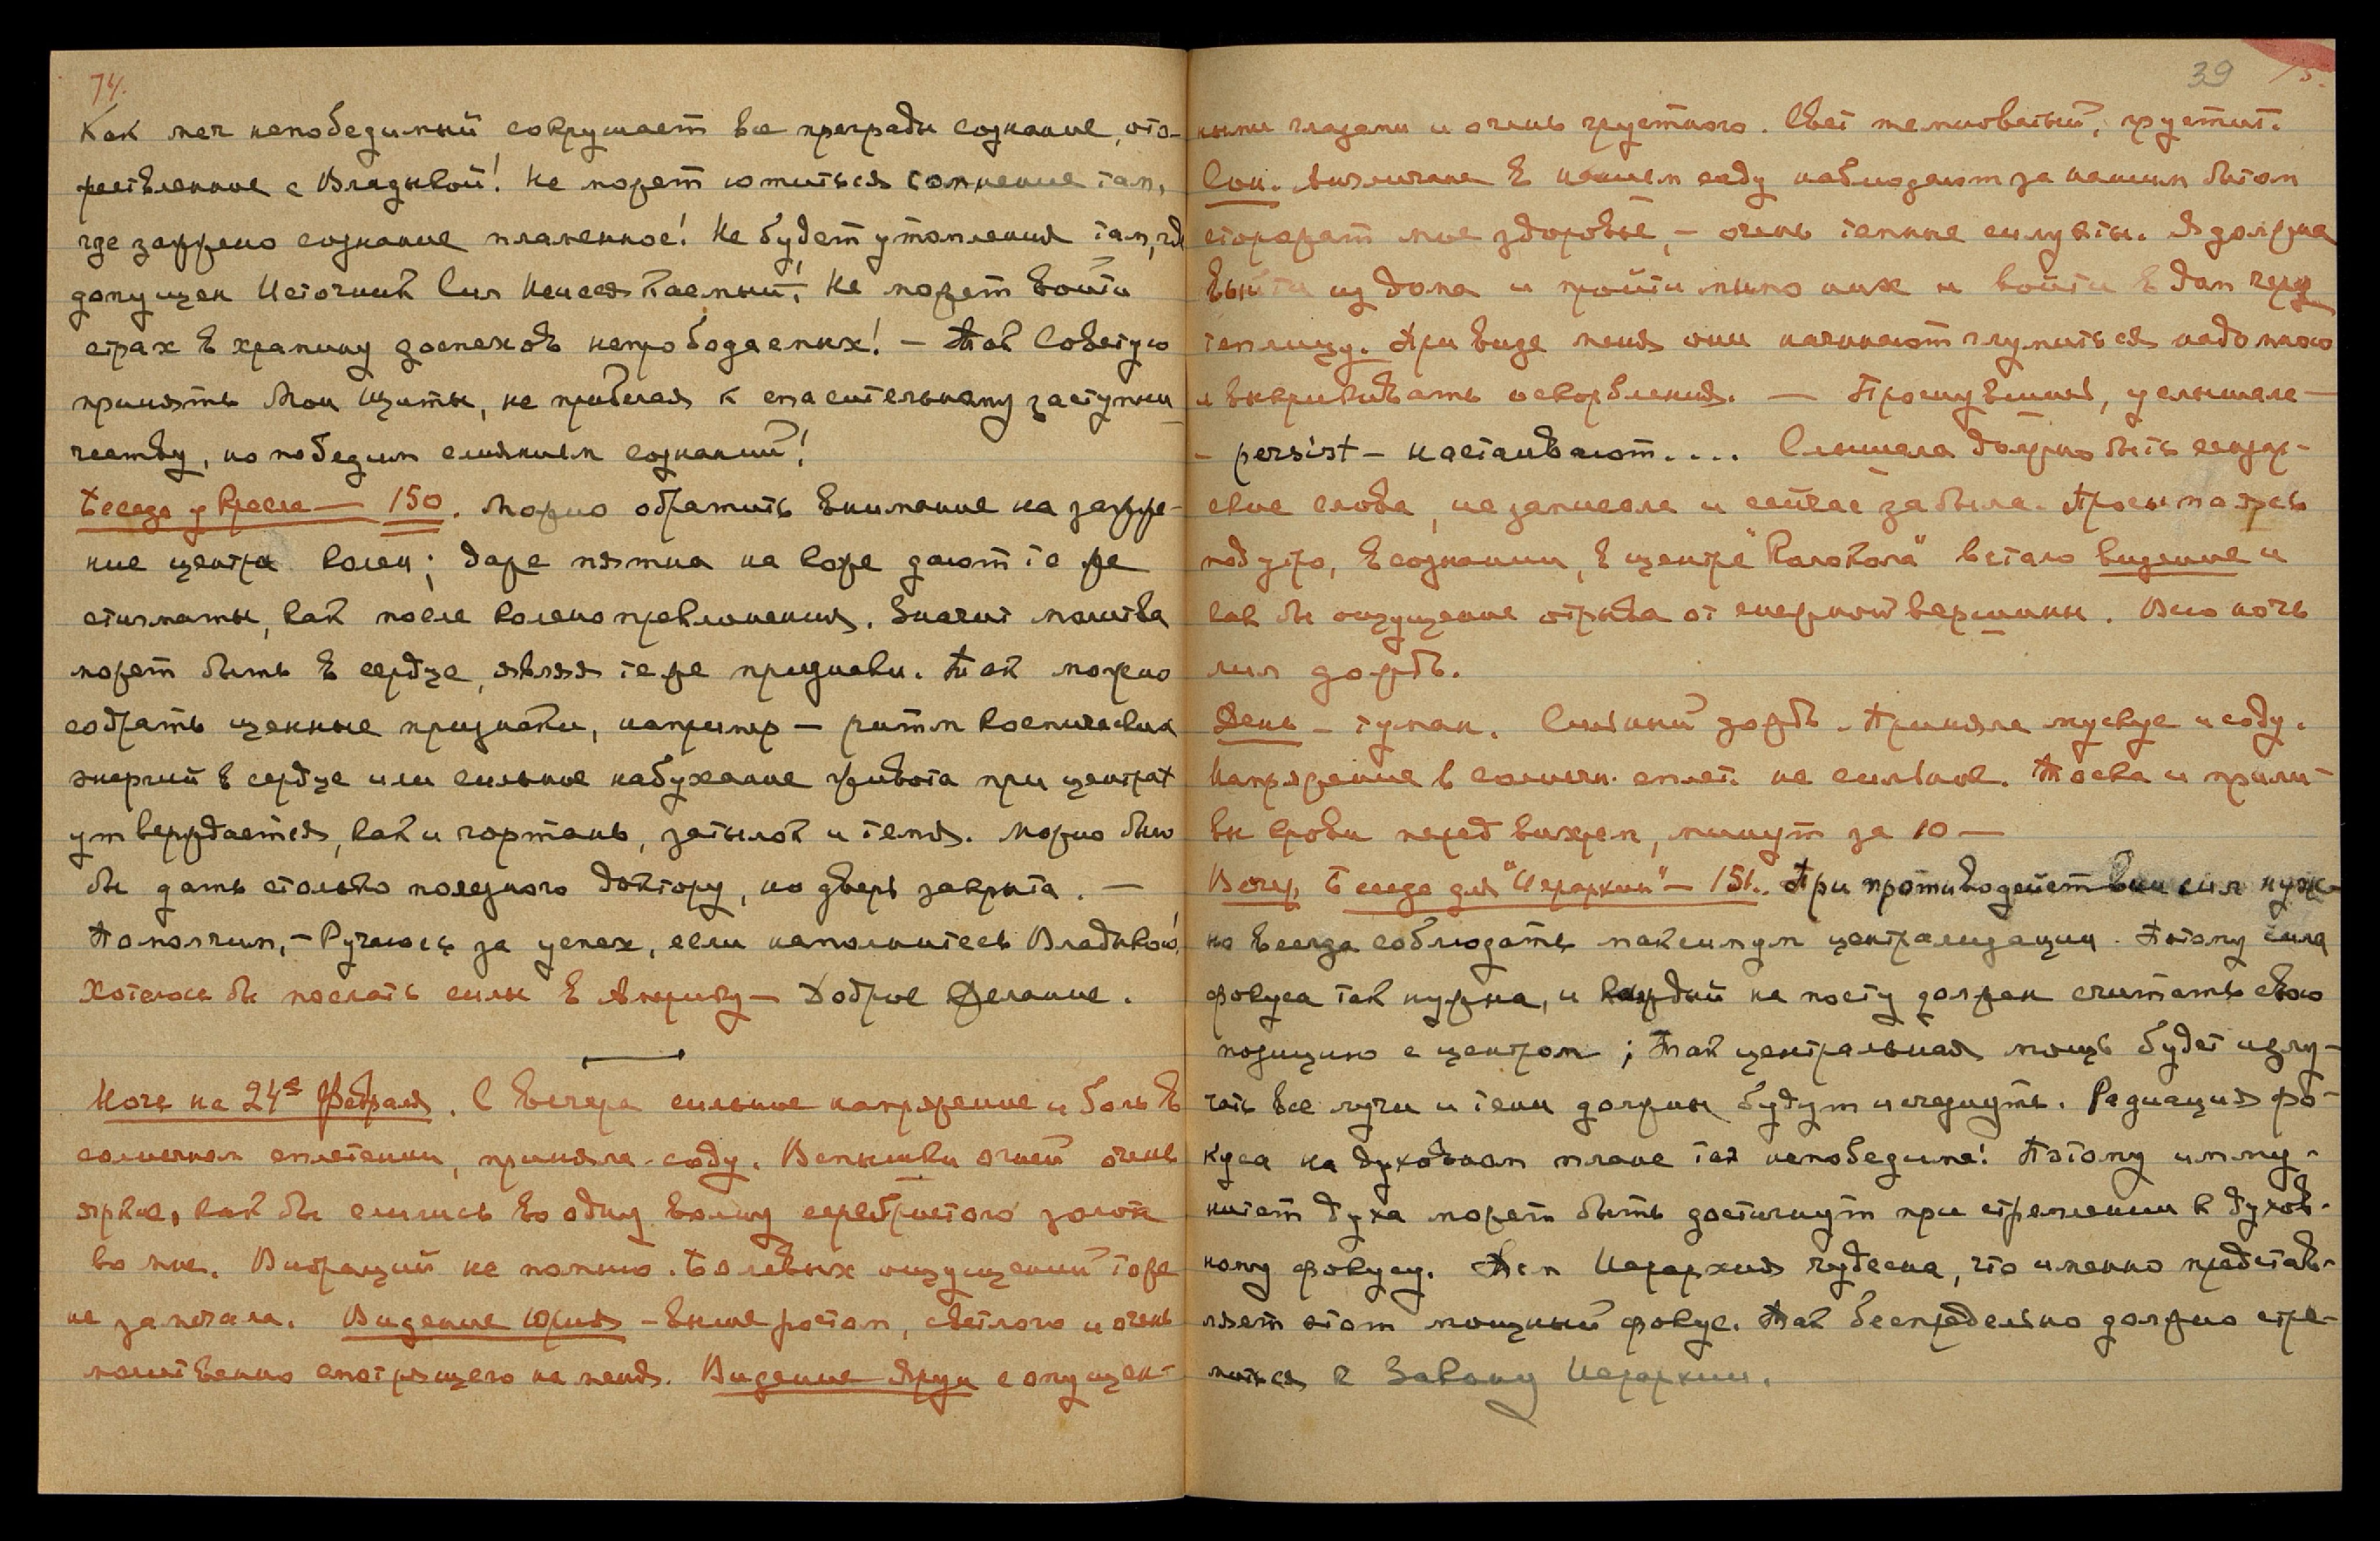 74.
Как меч непобедимый сокрушает все преграды сознание, ото-
жествленное с Владыкой! Не может ютиться сомнение там,
где заложено сознание пламенное! Не будет утомления там, где
допущен Источник Сил Неиссякаемый! Не может войти
страх в храмину доспехов непрободаемых! — Так Советую
принять Мои Щиты, не прибегая к спасительному заступни-
честву, но победим слиянием сознаний!
Беседа у Кресла — 150. Можно обратить внимание на
ние центра колен; даже пятна на коже дают те же
стигматы, как после коленопреклонения. Значит молитва
может быть в сердце, являя те же признаки. Так можно
собрать ценные признаки, например — ритм космических
энергий в сердце или сильное набухание живота при центрах
утверждается, как и гортань, затылок и темя. Можно было
бы дать столько полезного доктору, но дверь закрыта. —
Помолчим, — Ручаюсь за успех, если наполнитесь Владыкою!
Хотелось бы послать силы в Америку — Доброе Желание.
Ночь на 24ое Февраля. С вечера сильное напряжение и боль в
солнечном сплетении, приняла соду. Вспышки огней очень
яркие, как бы слились во одну волну серебристого
ко мне. Вибраций не помню. Болевых ощущений тоже
не замечала. Видение Юрия — выше ростом, светлого и очень
молитвенно смотрящего на меня. Видение Яруи с опущен-
39
ными глазами и очень грустного. Свет, грустит.
Сон. Англичане в нашем саду наблюдают за нашим бытом
сторожат мое здоровье, — очень темные силуэты. Я должна
выйти из дома и пройти мимо них и войти в дом через
теплицу. При виде меня они начинают глумиться надо мною
и выкрикивать оскорбления. — Проснувшись, услышала —
— persist — настаивают.... Слышала должно быть сензар-
ские слова, не записала и сейчас забыла. Просыпаясь
под утро, в сознании, в центре "Колокола" встало видение и
как бы ощущение отрыва от снежной вершины. Всю ночь
лил дождь.
День — туман. Сильный дождь. Приняла мускус и соду.
Напряжение в солнечн. сплет. не сильное. Тоска и прили-
вы крови перед вихрем, минут за 10 —
Вечер, Беседа для "Иерархии" — 151. При противодействии сил нуж-
но всегда соблюдать максимум централизации. Потому сила
фокуса так нужна, и каждый на посту должен считать свою
позицию с центром; Так центральная мощь будет излу-
чать все лучи и тени должны будут исчезнуть. Радиация фо-
куса на духовном плане так непобедима! Поэтому имму-
нитет духа может быть достигнут при стремлении к духов-
ному фокусу. Тем Иерархия чудесна, что именно представ-
ляет этот мощный фокус. Так беспредельно должно стре-
миться к Закону Иерархии.